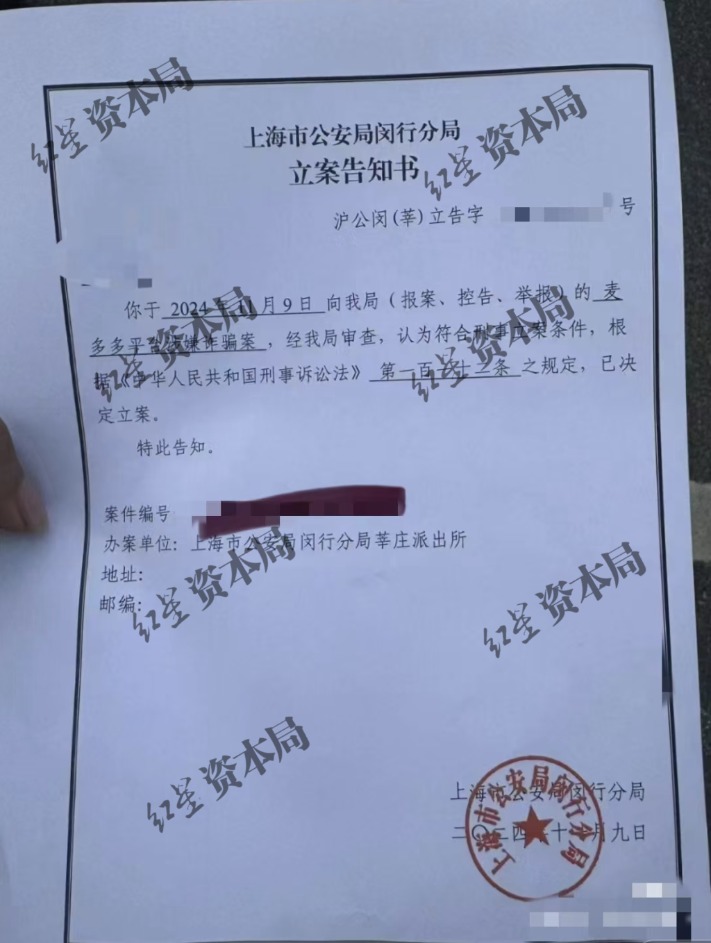 上海市公安局闵行分局
立案告知书
沪公闵(莘)立告字 号
你于 2024年11月9日 向我局（报案、控告、举报）的 麦
多多平台涉嫌诈骗案，经我局审查，认为符合刑事立案条件，根
据《中华人民共和国刑事诉讼法》第一百一十二条 之规定，已决
定立案。
特此告知。
案件编号
办案单位：上海市公安局闵行分局莘庄派出所
地址：
邮编：
上海市公安局闵行分局
二〇二四年十一月九日
上海市公安局闵行分局
红星 资本局
红星 资本局
红星 资本局
红星 资本局
红星 资本局
红星 资本局
红星 资本局